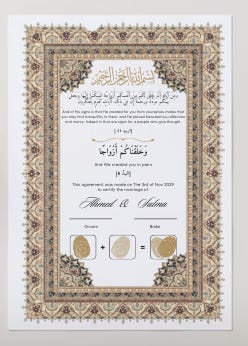 بسم الله الرحمن الرحيم
وَمِنْ آيَاتِهِ أَنْ خَلَقَ لَكُم مِّنْ أَنفُسِكُمْ أَزْوَاجًا لِّتَسْكُنُوا إِلَيْهَا وَجَعَلَ
بَيْنَكُم مَّوَدَّةً وَرَحْمَةً إِنَّ فِي ذَٰلِكَ لَآيَاتٍ لِّقَوْمٍ يَتَفَكَّرُونَ
And of His signs is that He created for you from yourselves mates that
you may find tranquillity in them; and He placed between you affection
and mercy. Indeed in that are signs for a people who give thought.
وَخَلَقْنَاكُمْ أَزْوَاجًا
And We created you in pairs
[النبأ: 8]
This agreement was made on The 3rd of Nov 2029
to certify the marriage of
Ahmed & Salma
Groom Bride
+ =